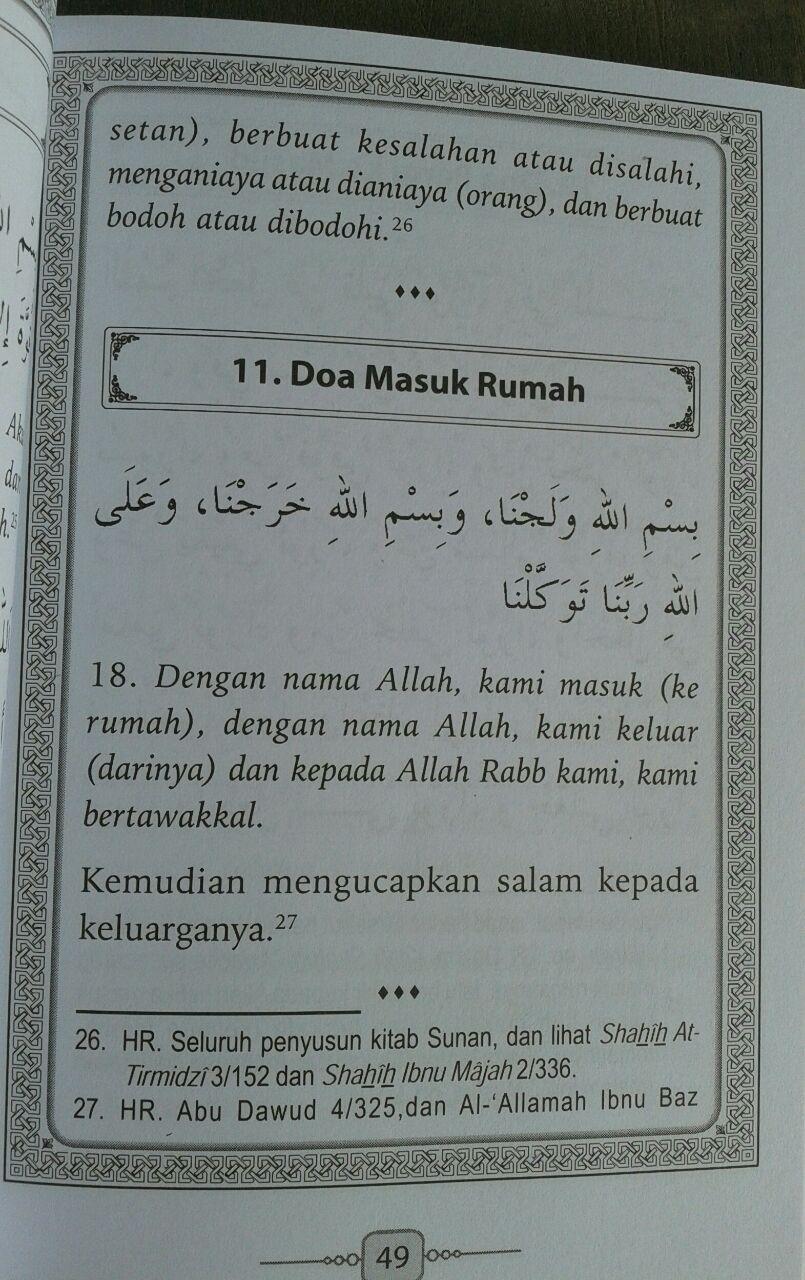 setan), berbuat kesalahan atau disalahi,
menganiaya atau dianiaya (orang), dan berbuat
bodoh atau dibodohi.²⁶
♦♦♦
11. Doa Masuk Rumah
بِسْمِ اللهِ وَلَجْنَا، وَبِسْمِ اللهِ خَرَجْنَا، وَعَلَى
اللهِ رَبِّنَا تَوَكَّلْنَا
18. Dengan nama Allah, kami masuk (ke
rumah), dengan nama Allah, kami keluar
(darinya) dan kepada Allah Rabb kami, kami
bertawakkal.
Kemudian mengucapkan salam kepada
keluarganya.²⁷
♦♦♦
26. HR. Seluruh penyusun kitab Sunan, dan lihat Shaẖîẖ At-
Tirmidzî 3/152 dan Shaẖîẖ Ibnu Mâjah 2/336.
27. HR. Abu Dawud 4/325,dan Al-‘Allamah Ibnu Baz
49